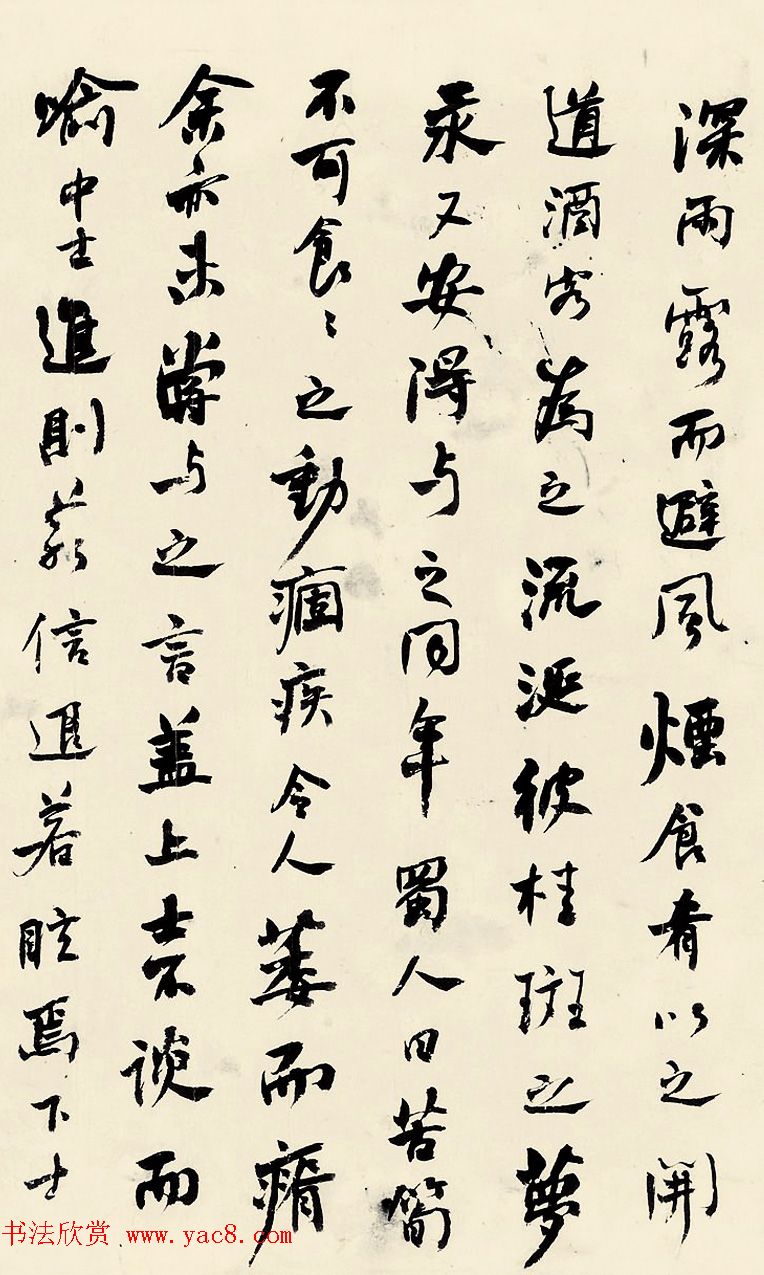 深雨露而避風煙食肴以之開
道酒客為之流涎彼桂斑之夢
永又安得与之同年蜀人曰苦筍
不可食〻之動痼疾令人萎而瘠
余亦未嘗与之言盖上士不談而
喻中士進則若信退若眩焉下士
书法欣赏 www.yac8.com